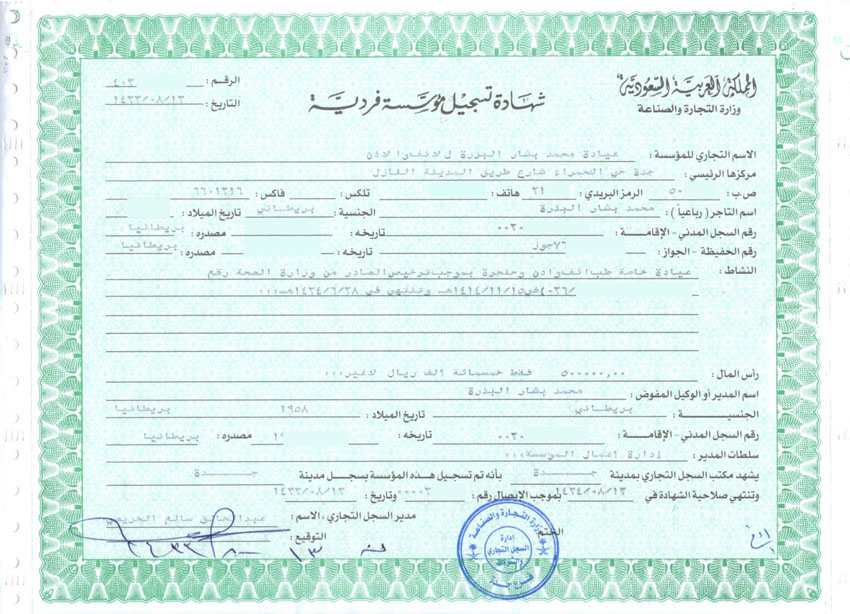 المملكة العربية السعودية
وزارة التجارة والصناعة
شهادة تسجيل مؤسسة فردية
الرقم : ٤٠٣
التاريخ : ١٤٣٣/٠٨/١٣
الاسم التجاري للمؤسسة : عيادة محمد بشار البزرة للانف والاذن
مركزها الرئيسي : جدة حي الحمراء شارع طريق المدينة النازل
ص.ب : ٥٠ الرمز البريدي : ٢١ هاتف : تلكس : فاكس : ٦٦٠١٣١٦
اسم التاجر ( رباعياً ) : محمد بشار البذرة الجنسية : بريطاني تاريخ الميلاد :
رقم السجل المدني - الإقامة : ٠٠٣٠ تاريخه : مصدره : بريطانيا
رقم الحفيظة - الجواز : ٧٦جوز تاريخه : مصدره : بريطانيا
النشاط : عيادة خاصة طب انف واذن وحنجرة بموجب ترخيص الصادر من وزارة الصحة رقم
٠٣٦/)في١٤١٤/١١/١٥هـ وتنتهي في ١٤٣٤/٦/٢٨هـ،،،
رأس المال : ٥٠٠٠٠٠,٠٠ فقط خمسمائة الف ريال لاغير،،،
اسم المدير أو الوكيل المفوض : محمد بشار البذرة
الجنسية : بريطاني تاريخ الميلاد : ١٩٥٨ بريطانيا
رقم السجل المدني - الإقامة : ٠٠٣٠ تاريخه : ١٩ مصدره : بريطانيا
سلطات المدير : إدارة اعمال المؤسسة،،،
يشهد مكتب السجل التجاري بمدينة جدة بأنه تم تسجيل هذه المؤسسة بسجل مدينة جدة
وتنتهي صلاحية الشهادة في ١٤٣٤/٠٨/١٣ بموجب الإيصال رقم : ٠٠٠٣ وتاريخ : ١٤٣٣/٠٨/١٣
الختم : مدير السجل التجاري ، الاسم : عبدالخالق سالم
التوقيع :
وزارة التجارة والصناعة
إدارة
السجل التجاري
فرع جدة